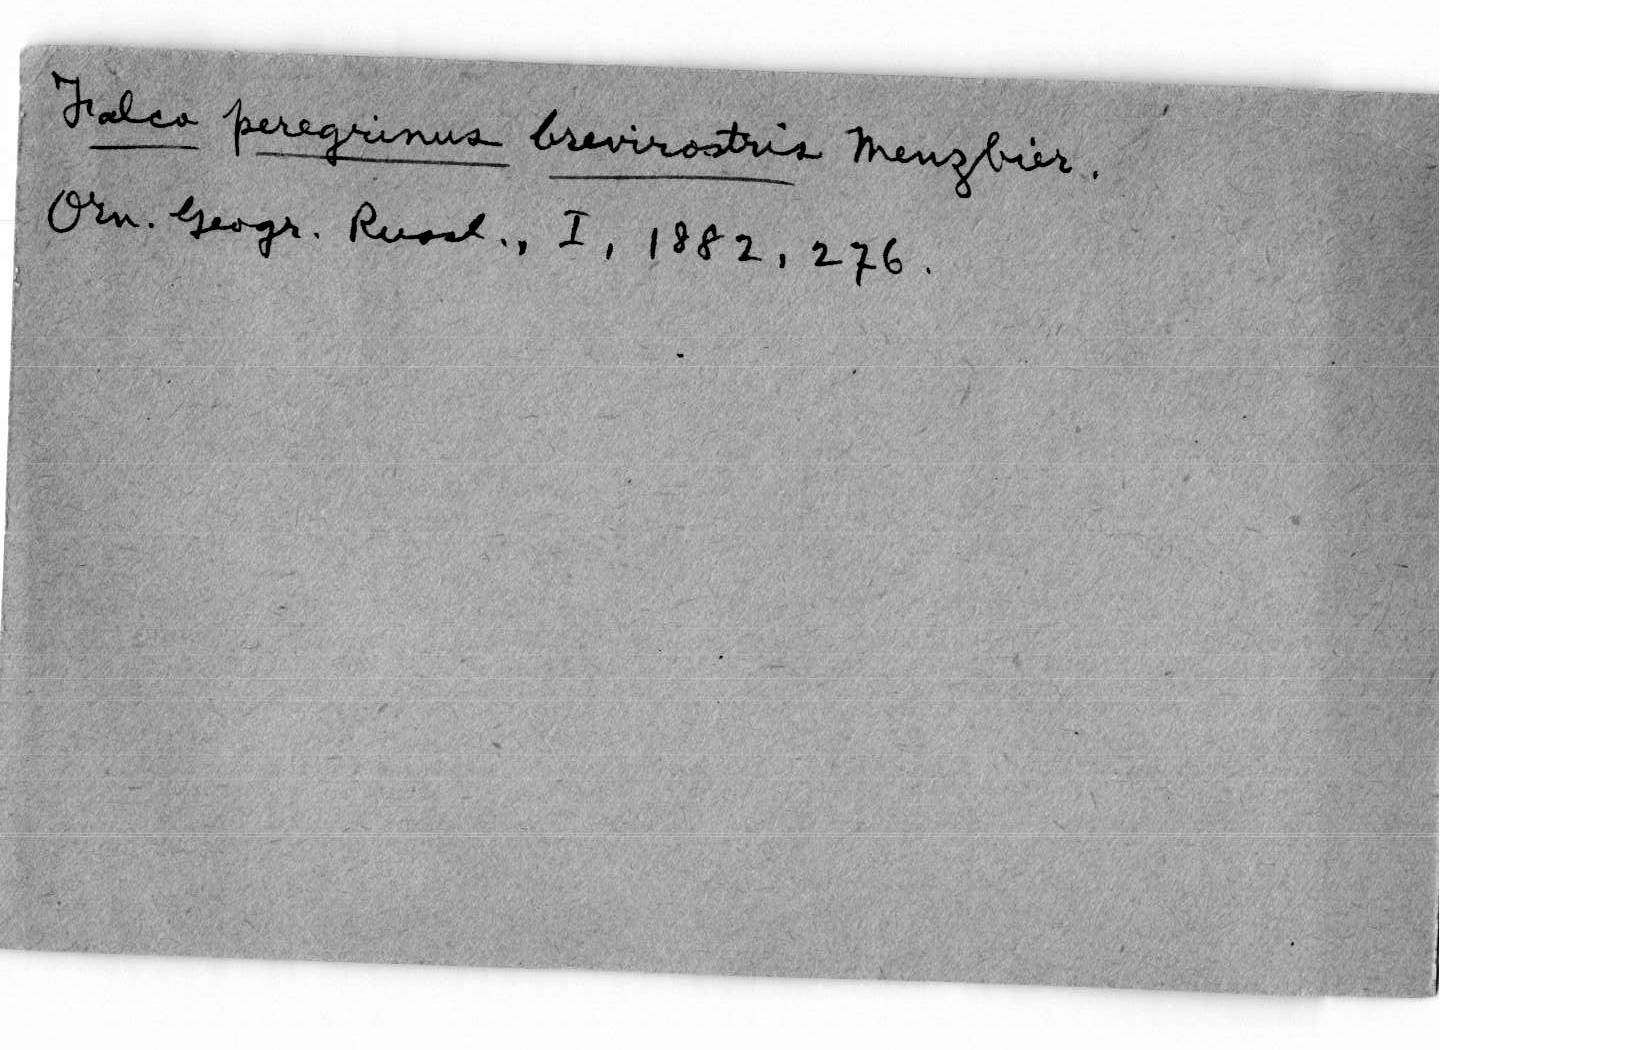 Falco peregrinus brevirostris Menzbier.
Orn. Geogr. Russl., I, 1882, 276.